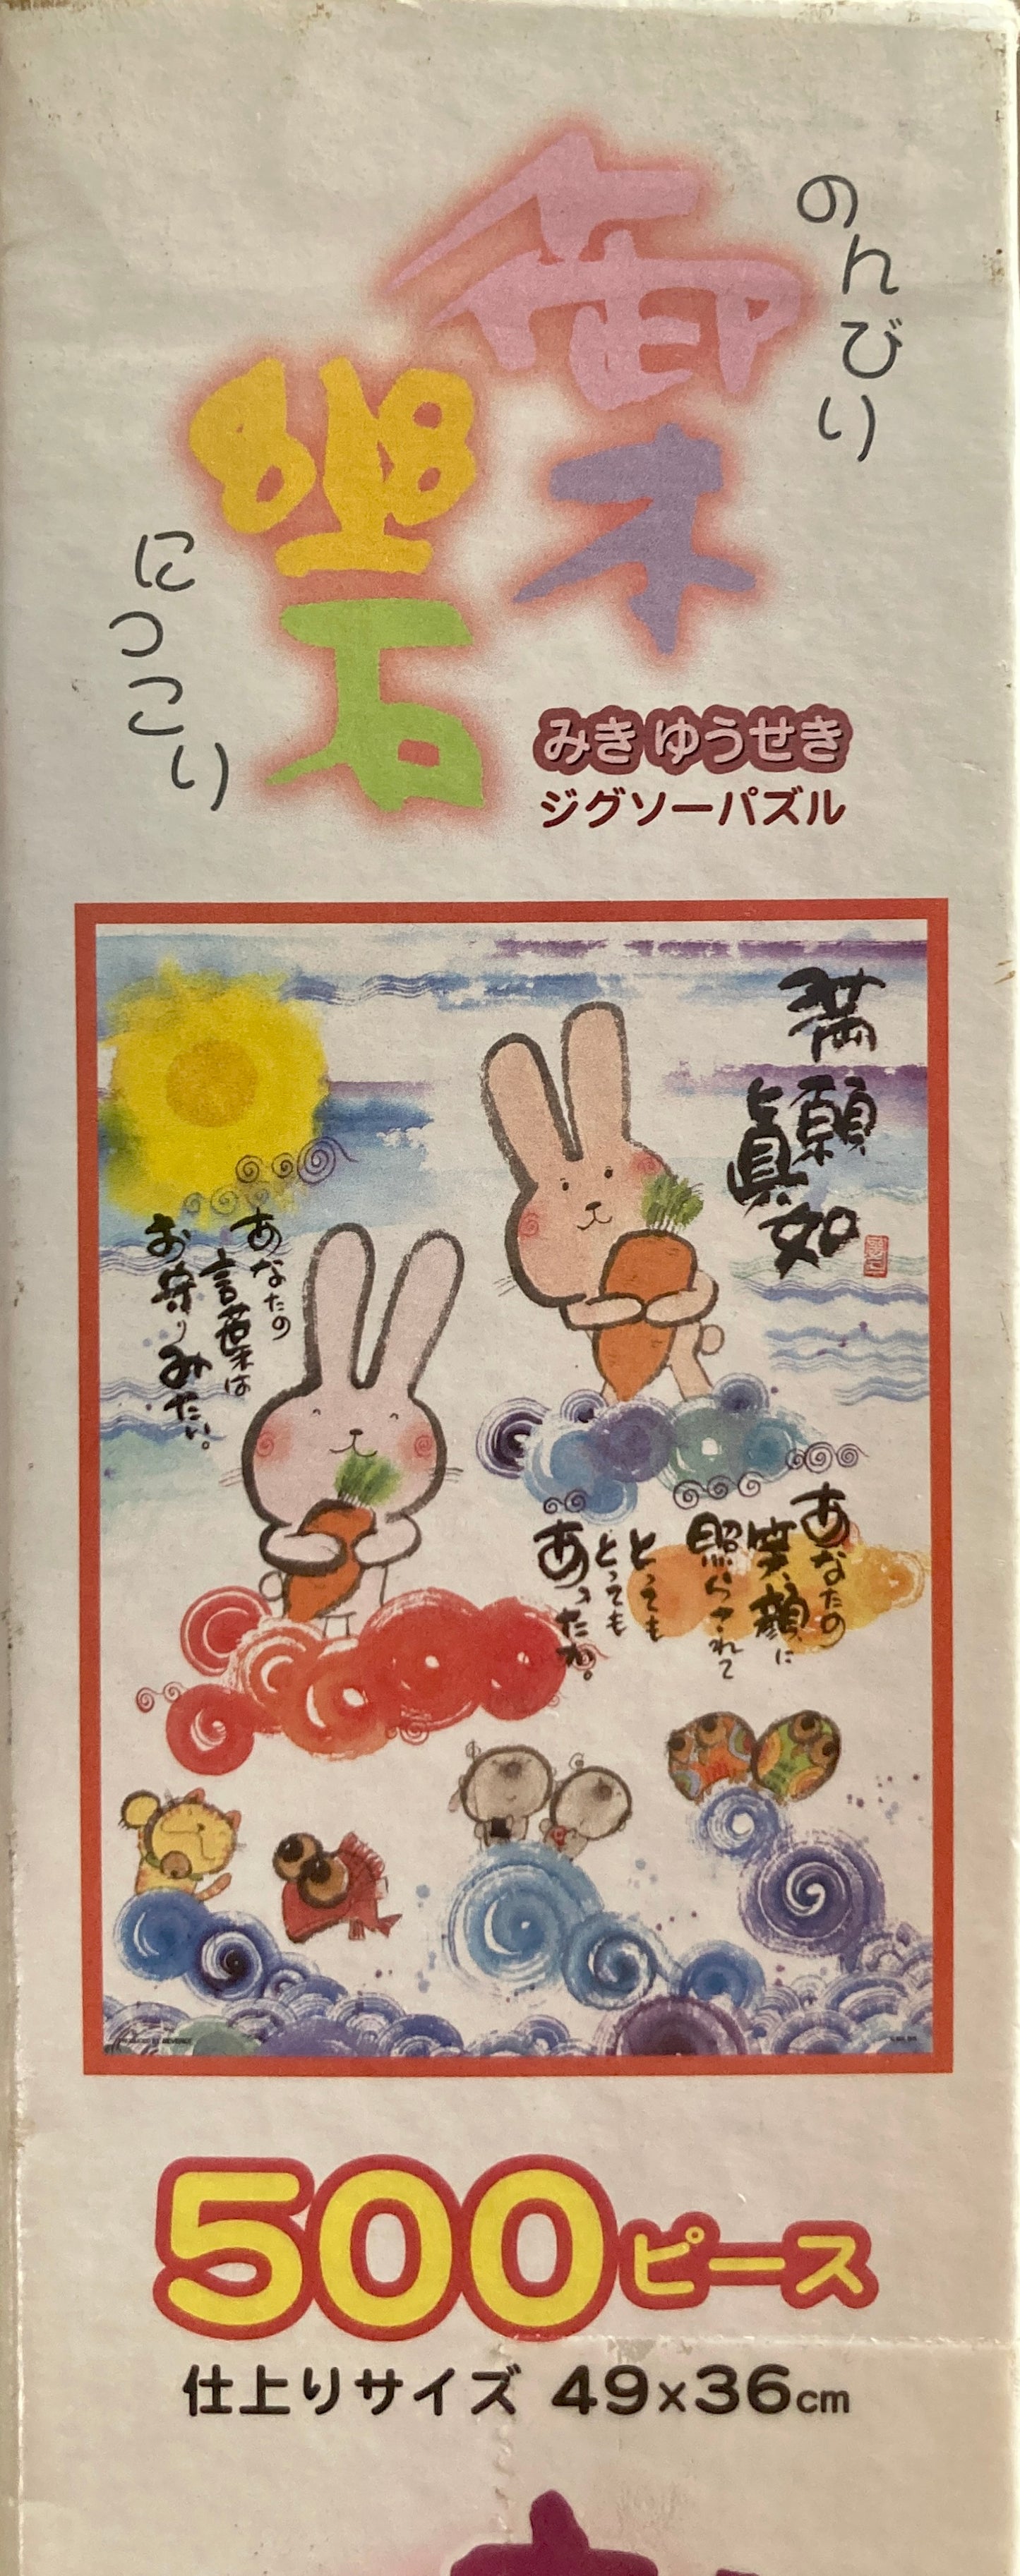 のんびり
御木
幽石
にっこり
みきゆうせき
ジグソーパズル
満
願
眞
如
あなたの
言葉は
お守りみたい。
あなたの
笑顔に
照らされて
とっても
とっても
あったか。
500ピース
仕上りサイズ 49×36cm